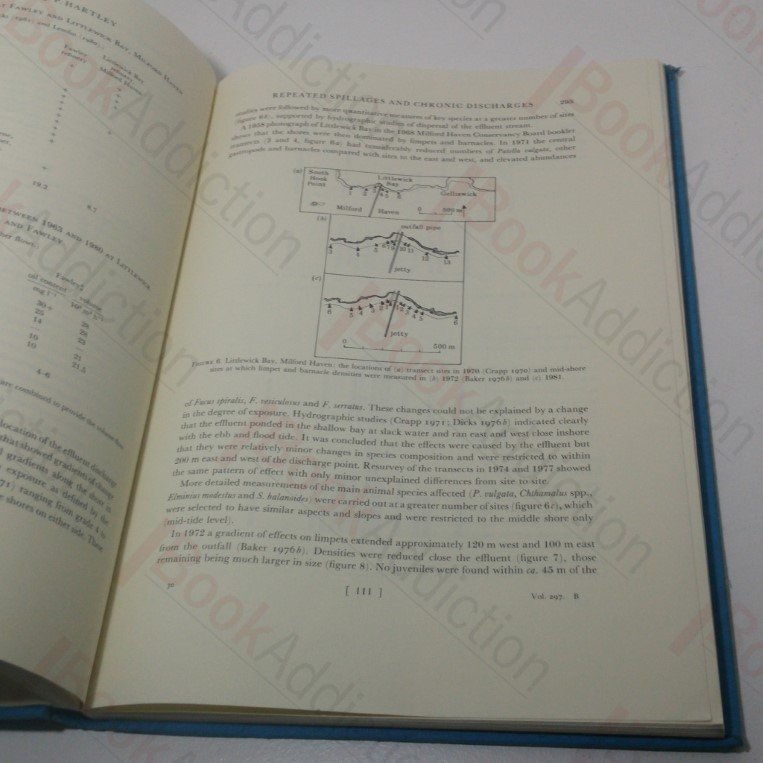 P HARTLEY
FAWLEY AND LITTLEWICK BAY, MILFORD HAVEN
Fawley
refinery
Littlewick Bay
refinery
Milford Haven
19.2 8.7
BETWEEN 1963 AND 1980 AT LITTLEWICK
AND FAWLEY
Fawley
oil content
volume
30+
25 28
14 28
— 23
10 —
10 21
21.5
4–6
are combined to provide the
location of the effluent discharge
that showed gradients of change
gradients along the shore in
exposure as defined by the
ranging from grade
shores on either side. These
REPEATED SPILLAGES AND CHRONIC DISCHARGES 295
studies were followed by more quantitative measures of key species at a greater number of sites
(figure 6c), supported by hydrographic studies of dispersal of the effluent stream.
A 1958 photograph of Littlewick Bay in the 1968 Milford Haven Conservancy Board booklet
shows that the shores were then dominated by limpets and barnacles. In 1971 the central
transects (3 and 4, figure 6a) had considerably reduced numbers of Patella vulgata, other
gastropods and barnacles compared with sites to the east and west, and elevated abundances
(a) South
Hook
Point
Littlewick
Bay
Gelliswick
Milford Haven 0 500 m
(b)
outfall pipe
jetty
(c)
jetty
0 500 m
FIGURE 6. Littlewick Bay, Milford Haven: the locations of (a) transect sites in 1970 (Crapp 1970) and mid-shore
sites at which limpet and barnacle densities were measured in (b) 1972 (Baker 1976b) and (c) 1981.
of Fucus spiralis, F. vesiculosus and F. serratus. These changes could not be explained by a change
in the degree of exposure. Hydrographic studies (Crapp 1971; Dicks 1976b) indicated clearly
that the effluent ponded in the shallow bay at slack water and ran east and west close inshore
with the ebb and flood tide. It was concluded that the effects were caused by the effluent but
that they were relatively minor changes in species composition and were restricted to within
200 m east and west of the discharge point. Resurvey of the transects in 1974 and 1977 showed
the same pattern of effect with only minor unexplained differences from site to site.
More detailed measurements of the main animal species affected (P. vulgata, Chthamalus spp.,
Elminius modestus and S. balanoides) were carried out at a greater number of sites (figure 6c), which
were selected to have similar aspects and slopes and were restricted to the middle shore only
(mid-tide level).
In 1972 a gradient of effects on limpets extended approximately 120 m west and 100 m east
from the outfall (Baker 1976b). Densities were reduced close the effluent (figure 7), those
remaining being much larger in size (figure 8). No juveniles were found within ca. 45 m of the
[ 111 ] Vol. 297. B
BookAddiction